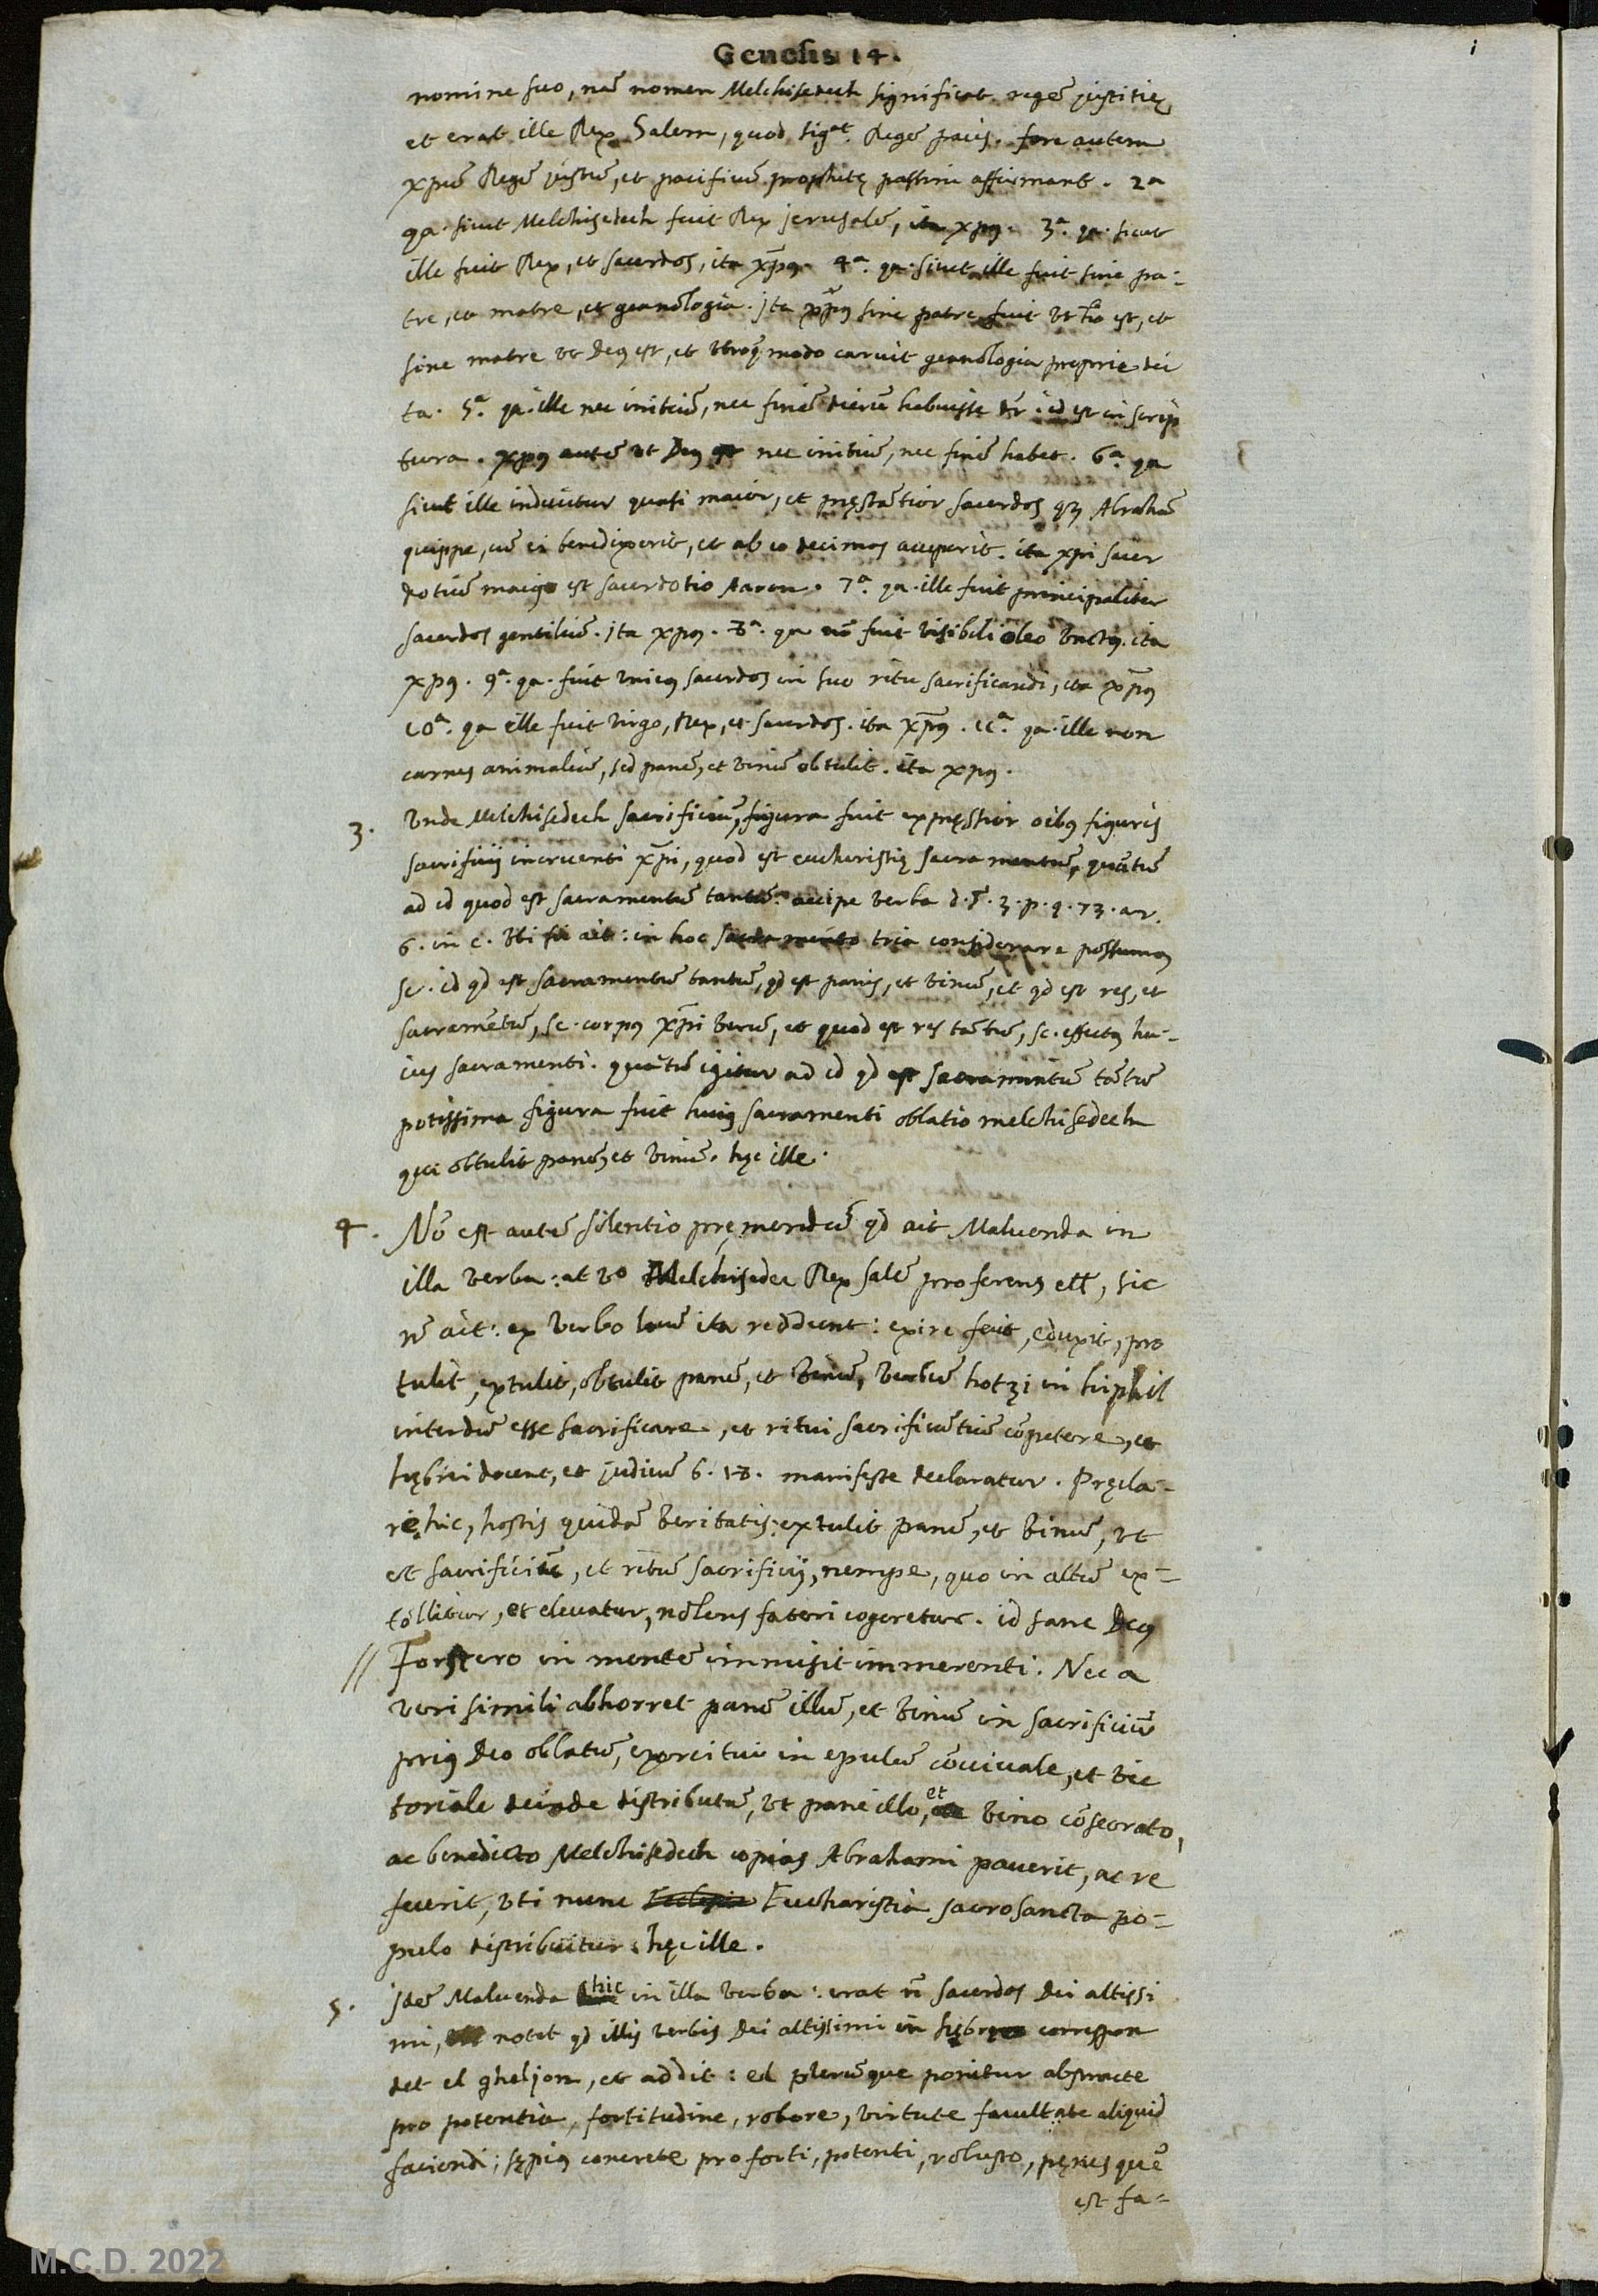 Genesis 14.
1
nomine suo, nã nomen Melchisedech significat regẽ justitię
et erat ille Rex Salem, quod sigat. Regẽ pacis. fore autem
xpũ Regẽ justũ, et pacificũ prophetę passim affirmant. 2a
qa. sicut Melchisedech fuit Rex jerusalẽ, ita xps. 3a. qa. sicut
ille fuit Rex, et sacerdos, ita xps. 4a. qa. sicut ille fuit sine pa-
tre, et matre, et geanologia. jta xps sine patre fuit vt ho est, et
sine matre vt Deus est, et vtroq modo caruit geanologia proprie dic
ta. 5a. qa. ille nec initiũ, nec finẽ dierũ habuisse dr. id est in scrip
tura. xps autẽ vt Deus est nec initiũ, nec finẽ habet. 6a. qa
sicut ille inducitur quasi maior, et pręstãtior sacerdos qm Abrahã
quippe, cũ ei benedixerit, et ab eo decimas acceperit. ita xpi sacer
dotiũ maius est sacerdotio Aaron. 7a. qa. ille fuit principaliter
sacerdos gentiliũ. jta xps. 8a. qa nõ fuit visibili oleo vnctus. ita
xps. 9a. qa. fuit vnicus sacerdos in suo ritu sacrificandi, ita xps
10a. qa ille fuit virgo, Rex, et sacerdos. ita xps. 11a. qa. ille non
carnes animaliũ, sed panẽ, et vinũ obtulit. ita xps.
3. Vnde Melchisedech sacrificiũ, figura fuit expręssior oibus figuris
sacrificij incruenti xpi, quod est eucharistię sacramentũ, quãtũ
ad id quod est sacramentũ tantũ. accipe verba d. T. 3. p. q. 73. ar.
6. in c. vbi sic ait: in hoc sacramento tria considerare possumus
sc. id qd est sacramentũ tantũ, qd est panis, et vinũ, et qd est res, et
sacramẽtũ, sc. corpus xpi verũ, et quod est res tãtũ, sc. effectus hu-
ius sacramenti. quãtũ igitur ad id qd est sacramentũ tãtũ
potissima figura fuit huius sacramenti oblatio melchisedech
qui obtulit panẽ, et vinũ. hęc ille.
4. Nõ est autẽ silentio pręmendũ qd ait Maluenda in
illa verba: at vo Melchisedec Rex salẽ proferens etc, sic
n ait: ex verbo ita reddunt: exire fecit, eduxit, pro
tulit, extulit, obtulit panẽ, et vinũ, verbũ hotzi in hiphil
interdũ esse sacrificare, et ritui sacrificãtiũ cõpetere, et
hębręi docent, et judicũ 6. 18. manifeste declaratur. Pręcla-
rę hic, hostis quidã veritatis: extulit panẽ, et vinũ, vt
et sacrificiũ, et ritũ sacrificij, nempe, quo in altũ ex-
tollitur, et eleuatur, nolens fateri cogeretur. id sane Deus
// Forstero in mentẽ immisit immerenti. Nec a
veri simili abhorret panẽ illũ, et vinũ in sacrificiũ
prius Deo oblatũ, exercitui in epulũ cõuiuale, et vic
toriale deinde distributũ, vt pane illo, et vino cõsecrato,
ac benedicto Melchisedech copias Abrahami pauerit, ac re
fecerit, vti nunc Eucharistia sacrosancta po-
pulo distribuitur. hęc ille.
5. jdẽ Maluenda hic in illa verba: erat n sacerdos Dei altissi
mi, notat qd illis verbis Dei altissimi in hębręo correspon
det el ghelion, et addit: el plerũque ponitur abstracte
pro potentia, fortitudine, robore, virtute facultate aliquid
faciendi; sępius concrete pro forti, potenti, robusto, pęnes quẽ
est fa-
M.C.D. 2022